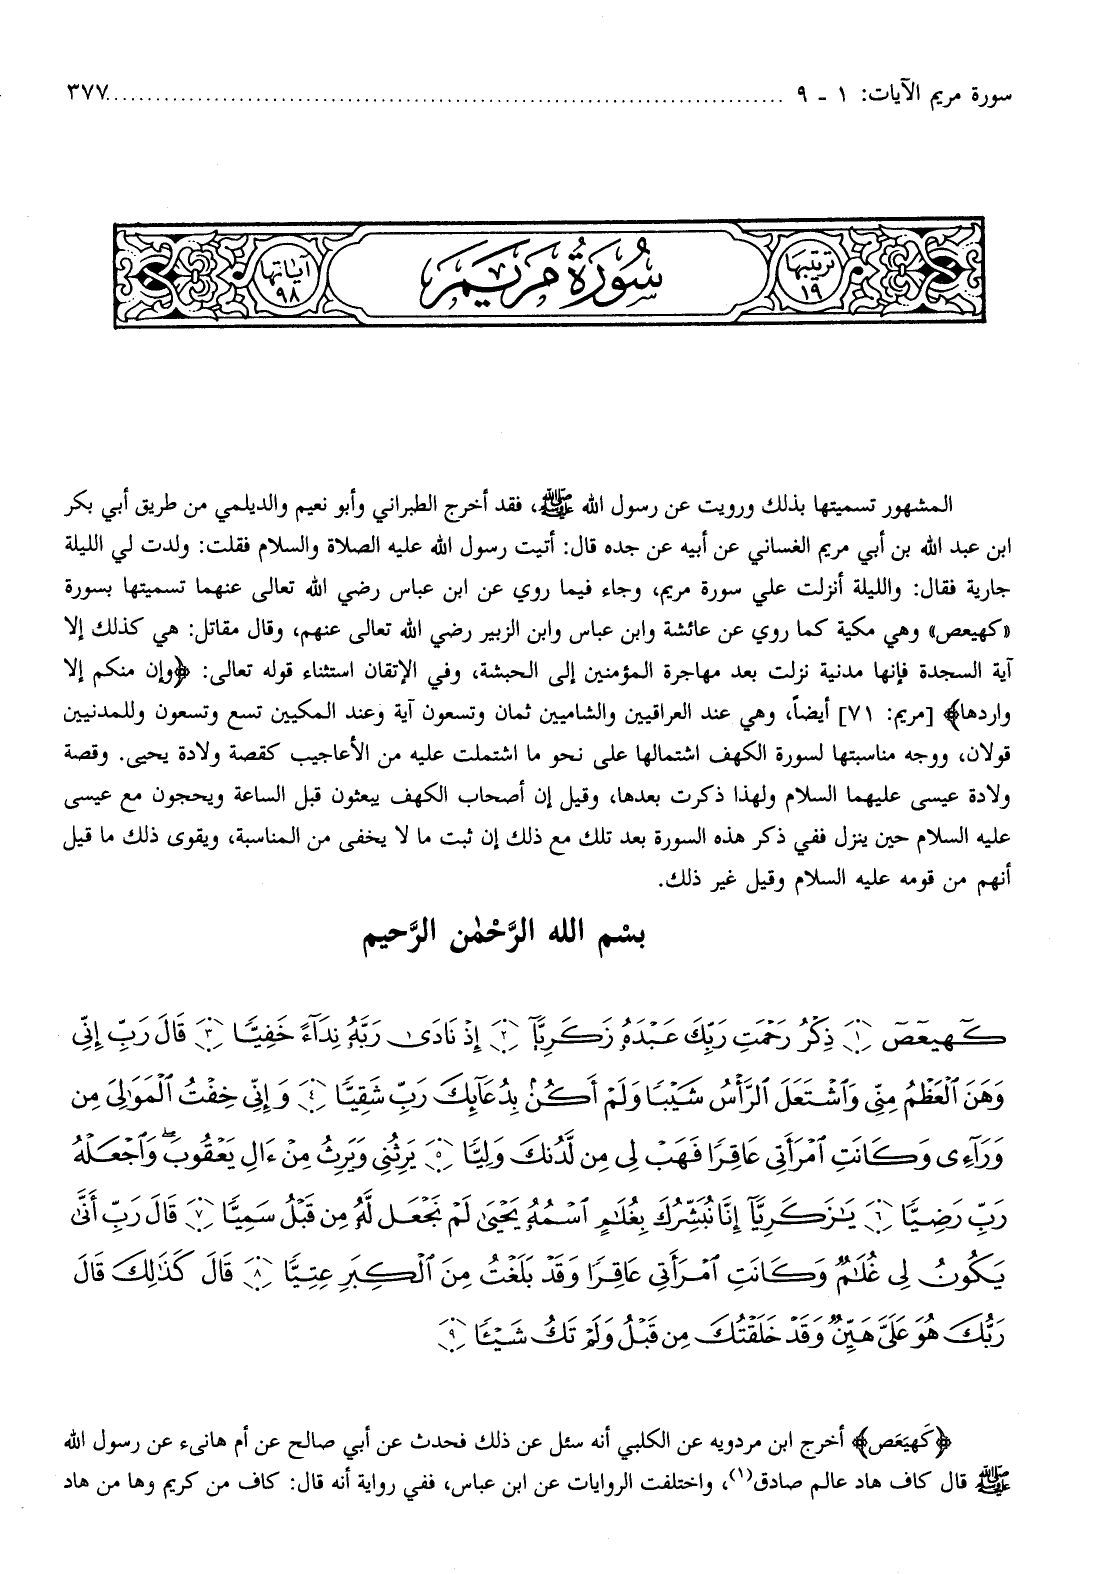 سورة مريم الآيات: ١ - ٩ ........................................................................ ٣٧٧
ترتيبها
١٩
سُورَةُ مَرْيَمَ
آياتها
٩٨
المشهور تسميتها بذلك ورويت عن رسول الله ﷺ، فقد أخرج الطبراني وأبو نعيم والديلمي من طريق أبي بكر
ابن عبد الله بن أبي مريم الغساني عن أبيه عن جده قال: أتيت رسول الله عليه الصلاة والسلام فقلت: ولدت لي الليلة
جارية فقال: والليلة أنزلت علي سورة مريم، وجاء فيما روي عن ابن عباس رضي الله تعالى عنهما تسميتها بسورة
«كهيعص» وهي مكية كما روي عن عائشة وابن عباس وابن الزبير رضي الله تعالى عنهم، وقال مقاتل: هي كذلك إلا
آية السجدة فإنها مدنية نزلت بعد مهاجرة المؤمنين إلى الحبشة، وفي الإتقان استثناء قوله تعالى: ﴿وإن منكم إلا
واردها﴾ [مريم: ٧١] أيضاً، وهي عند العراقيين والشاميين ثمان وتسعون آية وعند المكيين تسع وتسعون وللمدنيين
قولان، ووجه مناسبتها لسورة الكهف اشتمالها على نحو ما اشتملت عليه من الأعاجيب كقصة ولادة يحيى. وقصة
ولادة عيسى عليهما السلام ولهذا ذكرت بعدها، وقيل إن أصحاب الكهف يبعثون قبل الساعة ويحجون مع عيسى
عليه السلام حين ينزل ففي ذكر هذه السورة بعد تلك مع ذلك إن ثبت ما لا يخفى من المناسبة، ويقوى ذلك ما قيل
أنهم من قومه عليه السلام وقيل غير ذلك.
بسْم الله الرَّحْمٰن الرَّحيم
كٓهيعٓصٓ ﴿١﴾ ذِكْرُ رَحْمَتِ رَبِّكَ عَبْدَهُۥ زَكَرِيَّآ ﴿٢﴾ إِذْ نَادَىٰ رَبَّهُۥ نِدَآءً خَفِيًّا ﴿٣﴾ قَالَ رَبِّ إِنِّى
وَهَنَ ٱلْعَظْمُ مِنِّى وَٱشْتَعَلَ ٱلرَّأْسُ شَيْبًا وَلَمْ أَكُنۢ بِدُعَآئِكَ رَبِّ شَقِيًّا ﴿٤﴾ وَإِنِّى خِفْتُ ٱلْمَوَٰلِىَ مِن
وَرَآءِى وَكَانَتِ ٱمْرَأَتِى عَاقِرًا فَهَبْ لِى مِن لَّدُنكَ وَلِيًّا ﴿٥﴾ يَرِثُنِى وَيَرِثُ مِنْ ءَالِ يَعْقُوبَ ۖ وَٱجْعَلْهُ
رَبِّ رَضِيًّا ﴿٦﴾ يَٰزَكَرِيَّآ إِنَّا نُبَشِّرُكَ بِغُلَٰمٍ ٱسْمُهُۥ يَحْيَىٰ لَمْ نَجْعَل لَّهُۥ مِن قَبْلُ سَمِيًّا ﴿٧﴾ قَالَ رَبِّ أَنَّىٰ
يَكُونُ لِى غُلَٰمٌ وَكَانَتِ ٱمْرَأَتِى عَاقِرًا وَقَدْ بَلَغْتُ مِنَ ٱلْكِبَرِ عِتِيًّا ﴿٨﴾ قَالَ كَذَٰلِكَ قَالَ
رَبُّكَ هُوَ عَلَىَّ هَيِّنٌ وَقَدْ خَلَقْتُكَ مِن قَبْلُ وَلَمْ تَكُ شَيْـًٔا ﴿٩﴾
﴿كَهيَعَص﴾ أخرج ابن مردويه عن الكلبي أنه سئل عن ذلك فحدث عن أبي صالح عن أم هانىء عن رسول الله
ﷺ قال كاف هاد عالم صادق(١)، واختلفت الروايات عن ابن عباس، ففي رواية أنه قال: كاف من كريم وها من هاد